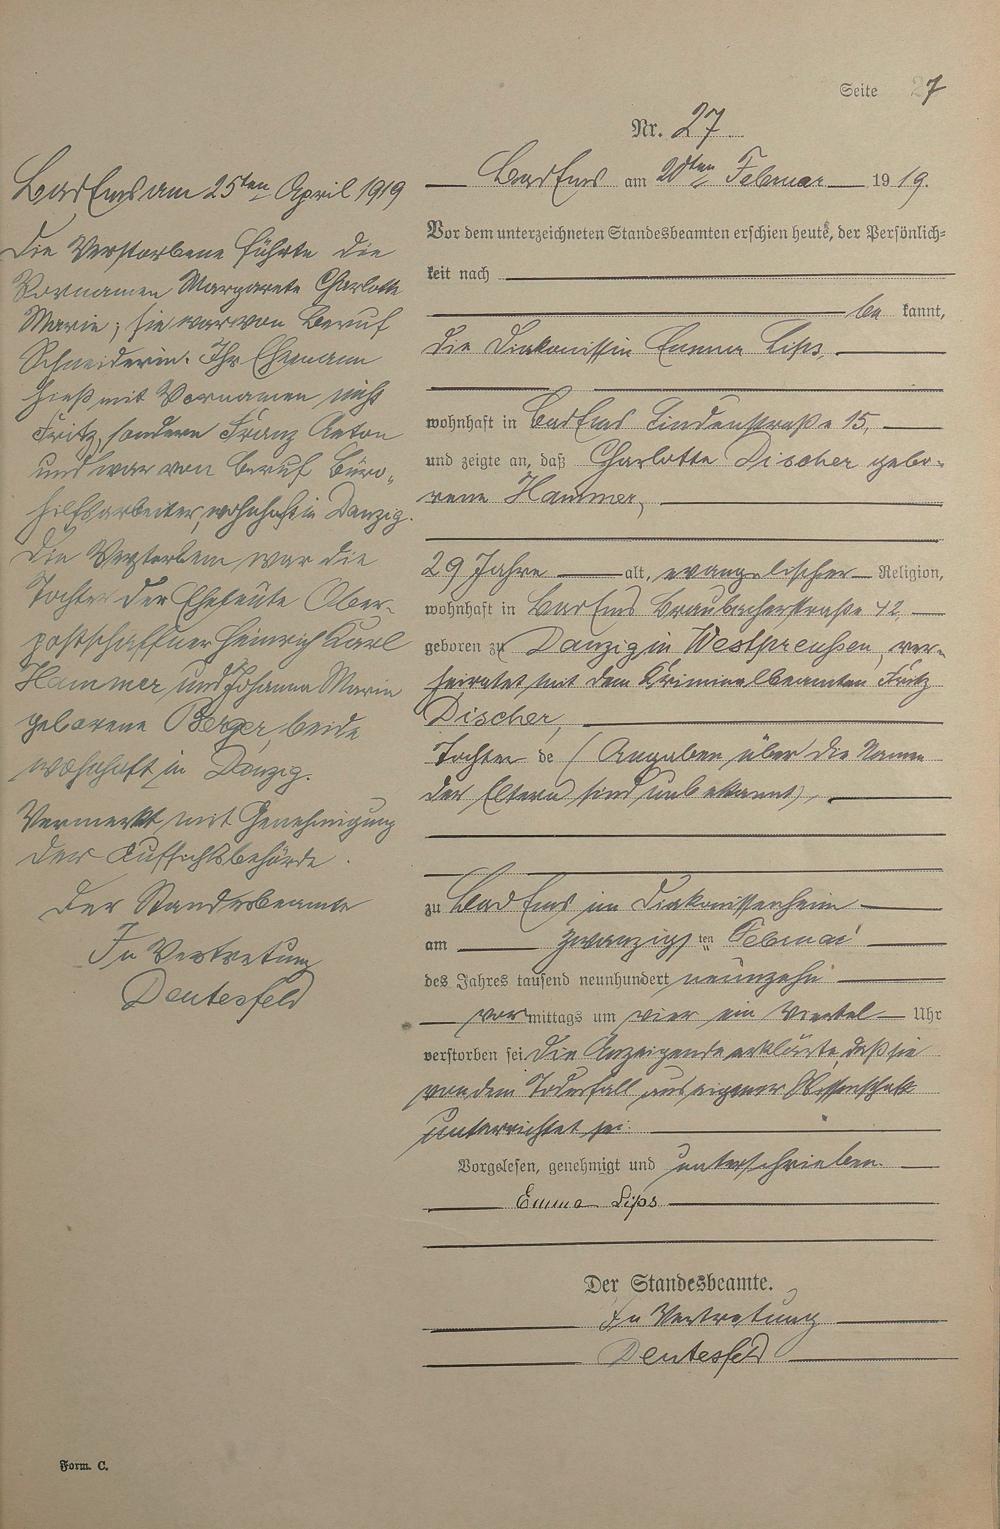 Seite 27
Nr. 27.
Bad Ems am 20ten Februar 1919.
Vor dem unterzeichneten Standesbeamten erschien heute, der Persönlich-
keit nach
be kannt,
die Diakonissin Emma Lips,
wohnhaft in Bad Ems Lindenstraße 15,
und zeigte an, daß Charlotte Discher gebo-
rene Hammer,
29 Jahre alt, evangelischer Religion,
wohnhaft in Bad Ems Braubacherstraße 42,
geboren zu Danzig in Westpreußen, ver-
heiratet mit dem Kriminalbeamten Fritz
Discher,
Tochter de (Angaben über die Namen
der Eltern sind unbekannt),
zu Bad Ems im Diakonissenheim
am zwanzigsten Februar
des Jahres tausend neunhundert neunzehn
vormittags um vier ein Viertel Uhr
verstorben sei. Die Anzeigende erklärte, daß sie
von dem Todesfall aus eigener Wissenschaft
unterrichtet sei.
Vorgelesen, genehmigt und unterschrieben.
Emma Lips
Der Standesbeamte.
In Vertretung
Deutesfeld
Bad Ems am 25ten April 1919
Die Verstorbene führte die
Vornamen Margarete Charlotte
Marie; sie war von Beruf
Schneiderin. Ihr Ehemann
hieß mit Vornamen nicht
Fritz, sondern Franz Anton
und war von Beruf Büro-
hilfsarbeiter, wohnhaft in Danzig.
Die Verstorbene war die
Tochter der Eheleute Ober-
postschaffner Heinrich Karl
Hammer und Johanna Marie
geborene Berger, beide
wohnhaft in Danzig.
Vermerkt mit Genehmigung
der Aufsichtsbehörde.
Der Standesbeamte
In Vertretung
Deutesfeld
Form. C.